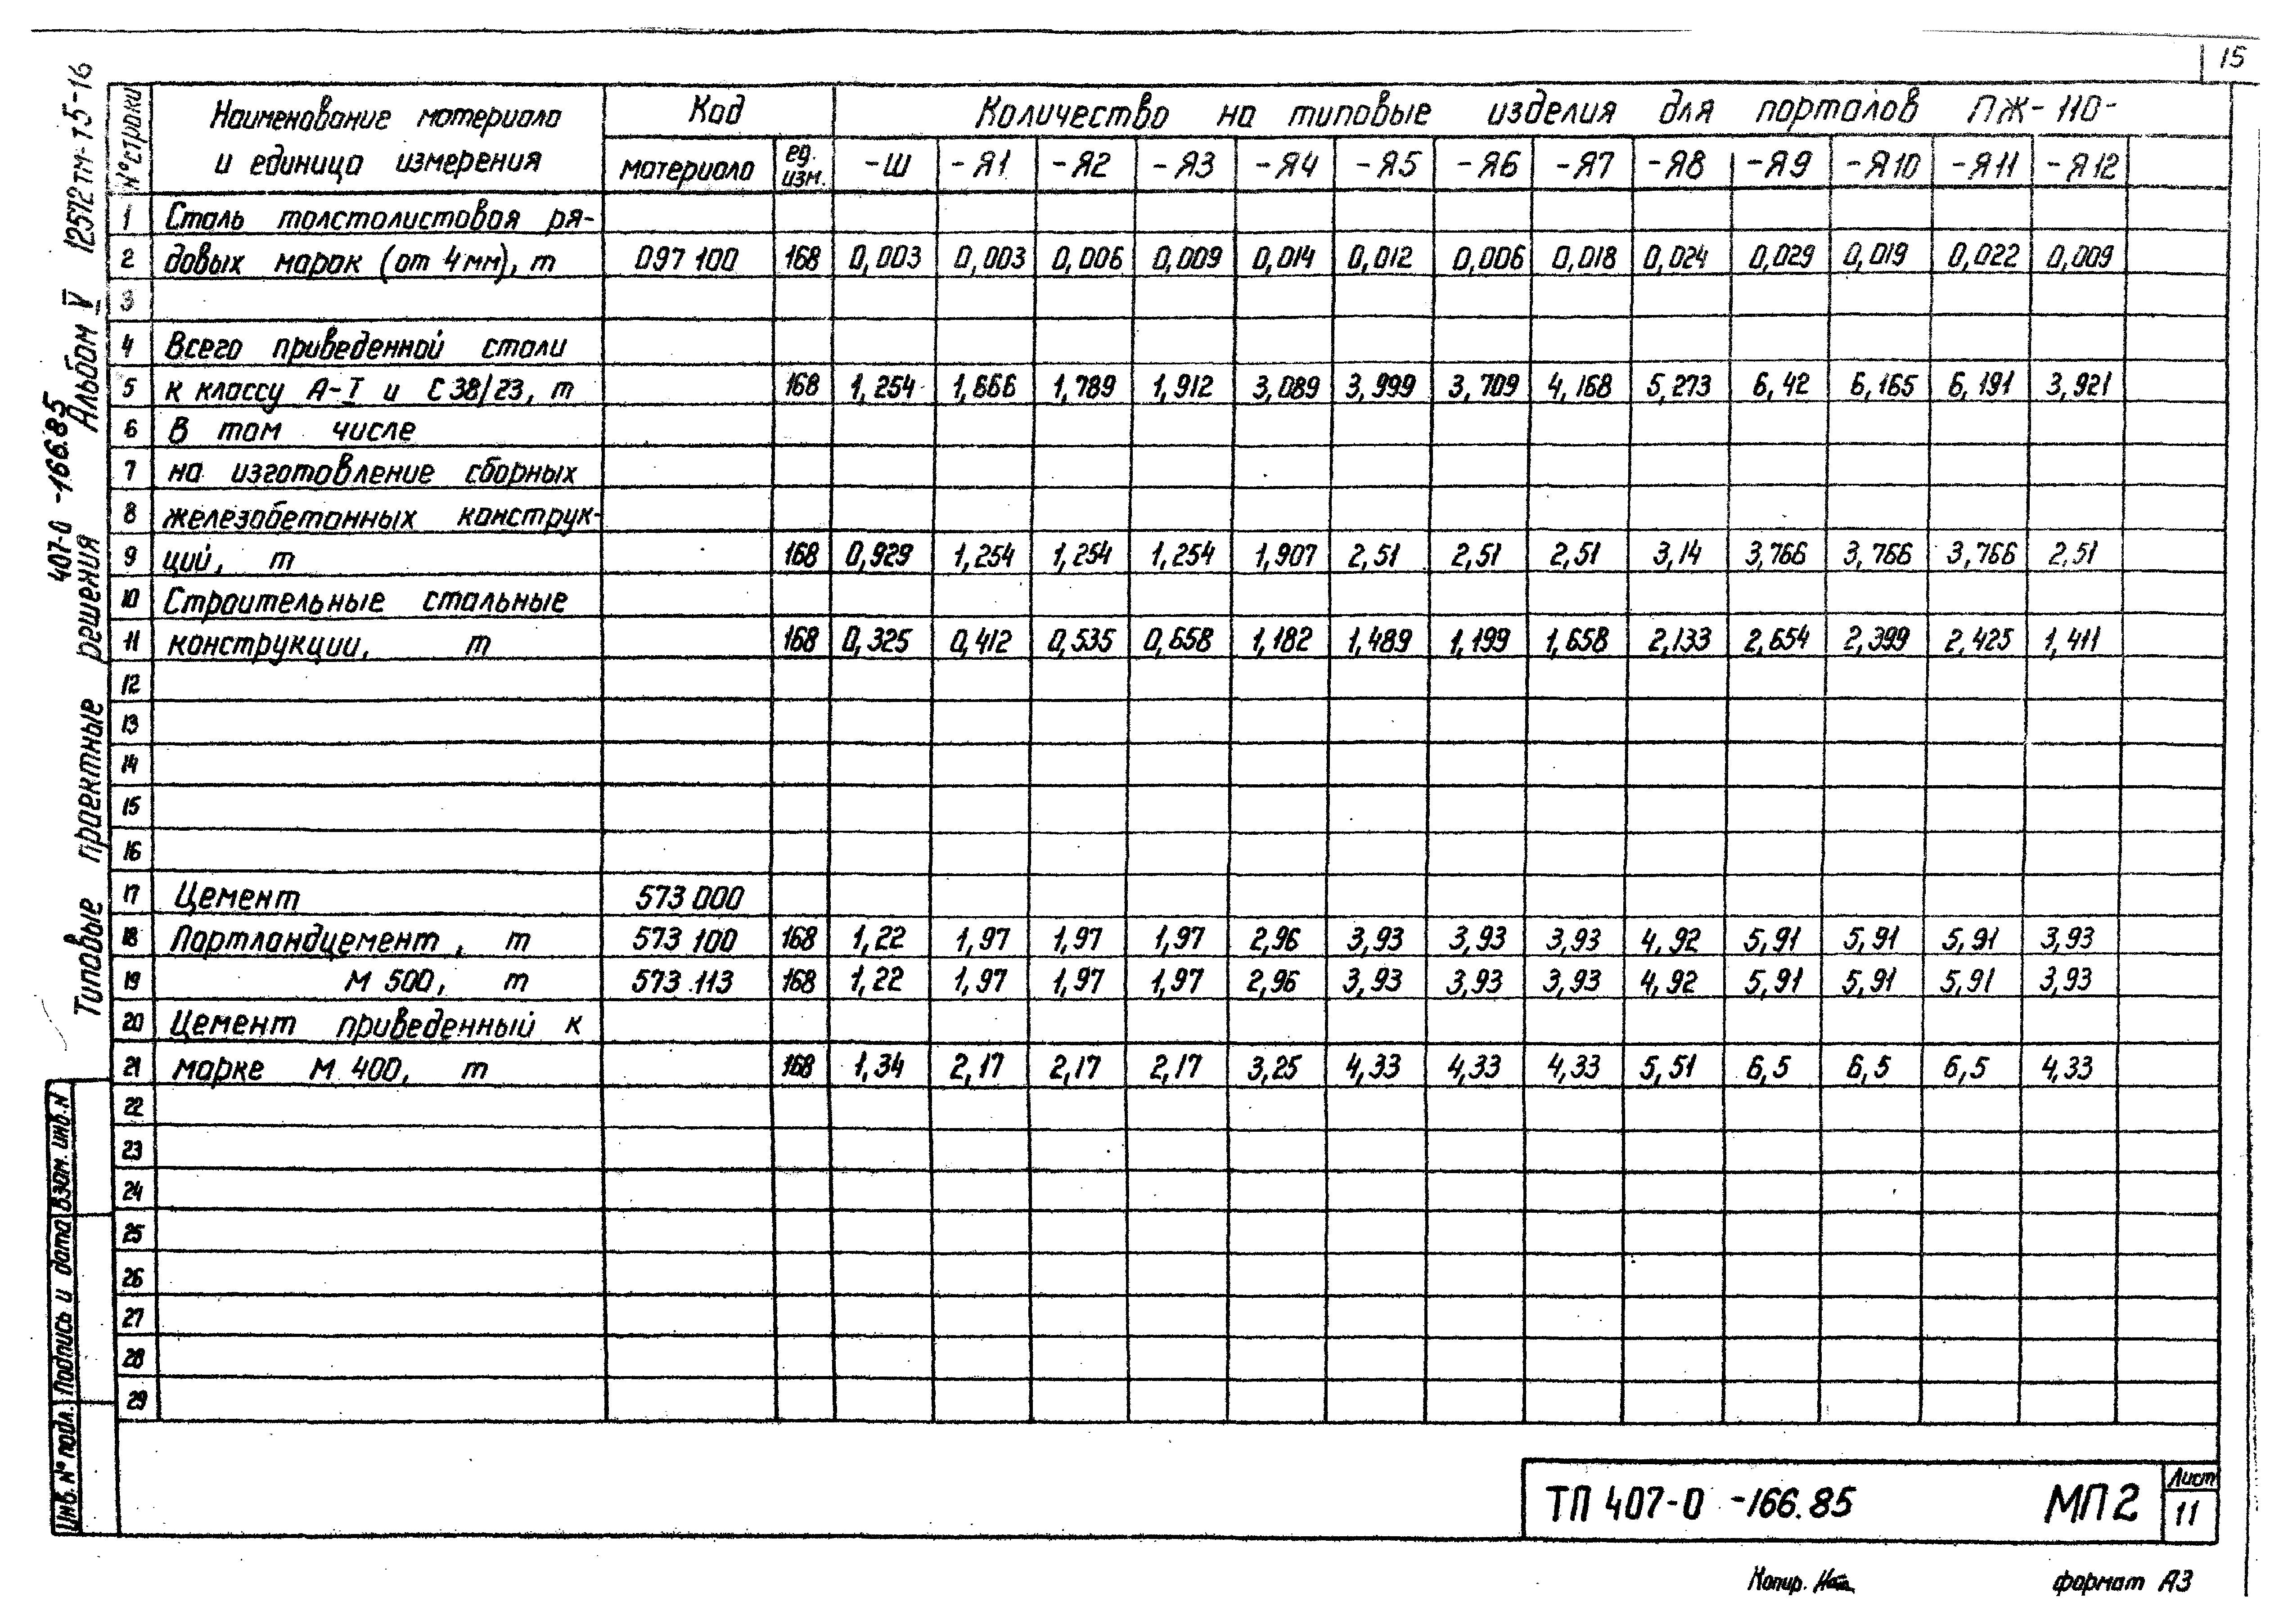 15
12572тм-т5-16
407-0 -166.85
Альбом V
Типовые проектные решения
N° строки
Наименование материала
и единица измерения
Код
материала
ед. изм.
Количество на типовые изделия для порталов ПЖ-110-
-Ш -Я1 -Я2 -Я3 -Я4 -Я5 -Я6 -Я7 -Я8 -Я9 -Я10 -Я11 -Я12
1 Сталь толстолистовая ря-
2 довых марок (от 4мм), т 097 100 168 0,003 0,003 0,006 0,009 0,014 0,012 0,006 0,018 0,024 0,029 0,019 0,022 0,009
3
4 Всего приведенной стали
5 к классу А-I и С38/23, т 168 1,254 1,666 1,789 1,912 3,089 3,999 3,709 4,168 5,273 6,42 6,165 6,191 3,921
6 В том числе
7 на изготовление сборных
8 железобетонных конструк-
9 ций, т 168 0,929 1,254 1,254 1,254 1,907 2,51 2,51 2,51 3,14 3,766 3,766 3,766 2,51
10 Строительные стальные
11 конструкции, т 168 0,325 0,412 0,535 0,658 1,182 1,489 1,199 1,658 2,133 2,654 2,399 2,425 1,411
12
13
14
15
16
17 Цемент 573 000
18 Портландцемент, т 573 100 168 1,22 1,97 1,97 1,97 2,96 3,93 3,93 3,93 4,92 5,91 5,91 5,91 3,93
19 М 500, т 573.113 168 1,22 1,97 1,97 1,97 2,96 3,93 3,93 3,93 4,92 5,91 5,91 5,91 3,93
20 Цемент приведенный к
21 марке М 400, т 168 1,34 2,17 2,17 2,17 3,25 4,33 4,33 4,33 5,51 6,5 6,5 6,5 4,33
22
23
24
25
26
27
28
29
Инв. N° подл. Подпись и дата Взам. инв. N
ТП 407-0 -166.85 МП2
Лист
11
Копир.
формат А3